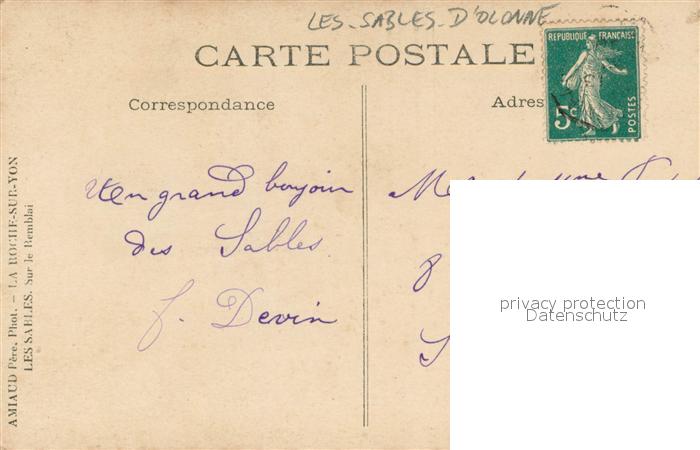 LES_SABLES_D'OLONNE
CARTE POSTALE
RÉPUBLIQUE FRANÇAISE
5c
POSTES
Correspondance
Adres
Un grand bonjour
des Sables
f. Devin
8
privacy protection
Datenschutz
AMIAUD Père, Phot. – LA ROCHE-SUR-YON
LES SABLES. Sur le Remblai